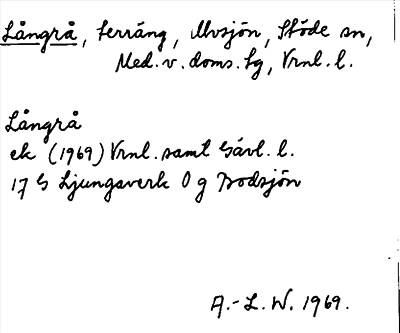 Långrå, terräng, Mvsjön, Stöde sn,
Med. v. doms. tg, Vrnl. l.
Långrå
ek (1969) Vrnl. samt Gävl. l.
17 G Ljungaverk 0 g Bodsjön
A.-L. W. 1969.